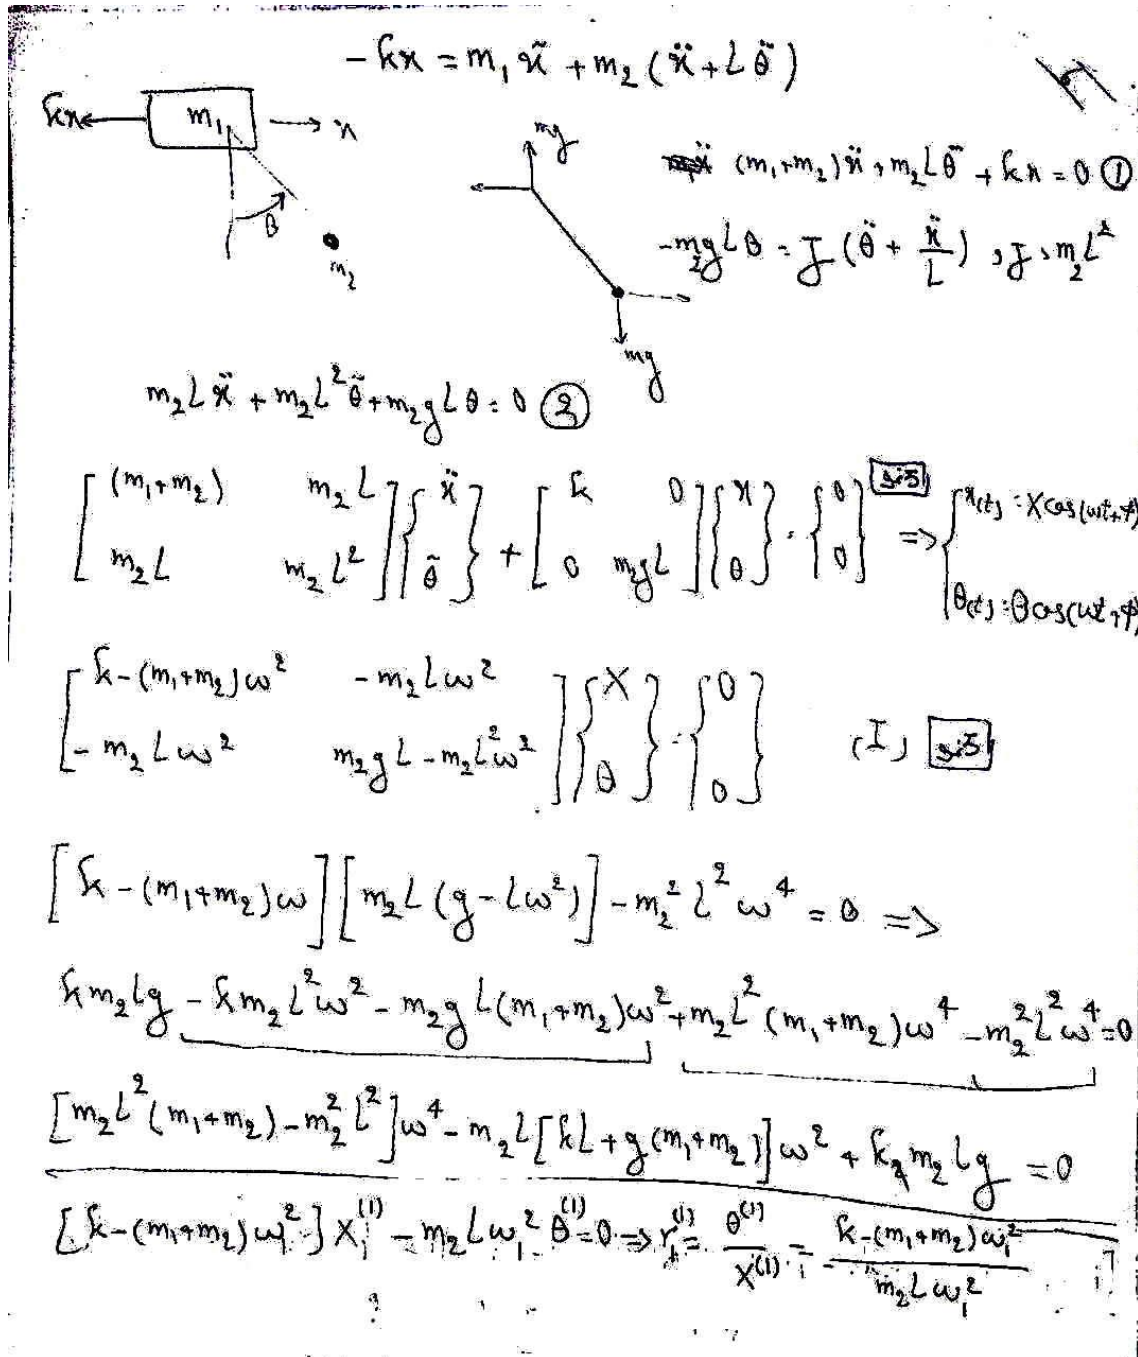 -kx = m₁ẍ + m₂(ẍ + Lθ̈)
kx m₁ x
θ
m₂
mg
mg
(m₁+m₂)ẍ + m₂Lθ̈ + kx = 0 ①
-m₂gLθ = J(θ̈ + ẍ/L) , J = m₂L²
m₂Lẍ + m₂L²θ̈ + m₂gLθ = 0 ②
[(m₁+m₂) m₂L; m₂L m₂L²]{ẍ; θ̈} + [k 0; 0 m₂gL]{x; θ} = {0; 0} => {x(t) = X cos(ωt+φ); θ(t) = θ cos(ωt+φ)
[k-(m₁+m₂)ω² -m₂Lω²; -m₂Lω² m₂gL-m₂L²ω²]{X; θ} = {0; 0} (I)
[k-(m₁+m₂)ω][m₂L(g-Lω²)] - m₂²L²ω⁴ = 0 =>
km₂Lg - km₂L²ω² - m₂gL(m₁+m₂)ω² + m₂L²(m₁+m₂)ω⁴ - m₂²L²ω⁴ = 0
[m₂L²(m₁+m₂) - m₂²L²]ω⁴ - m₂L[kL + g(m₁+m₂)]ω² + k m₂Lg = 0
[k-(m₁+m₂)ω₁²]X₁⁽¹⁾ - m₂Lω₁²θ⁽¹⁾ = 0 → r₁⁽¹⁾ = θ⁽¹⁾/X⁽¹⁾ = k-(m₁+m₂)ω₁²/m₂Lω₁²